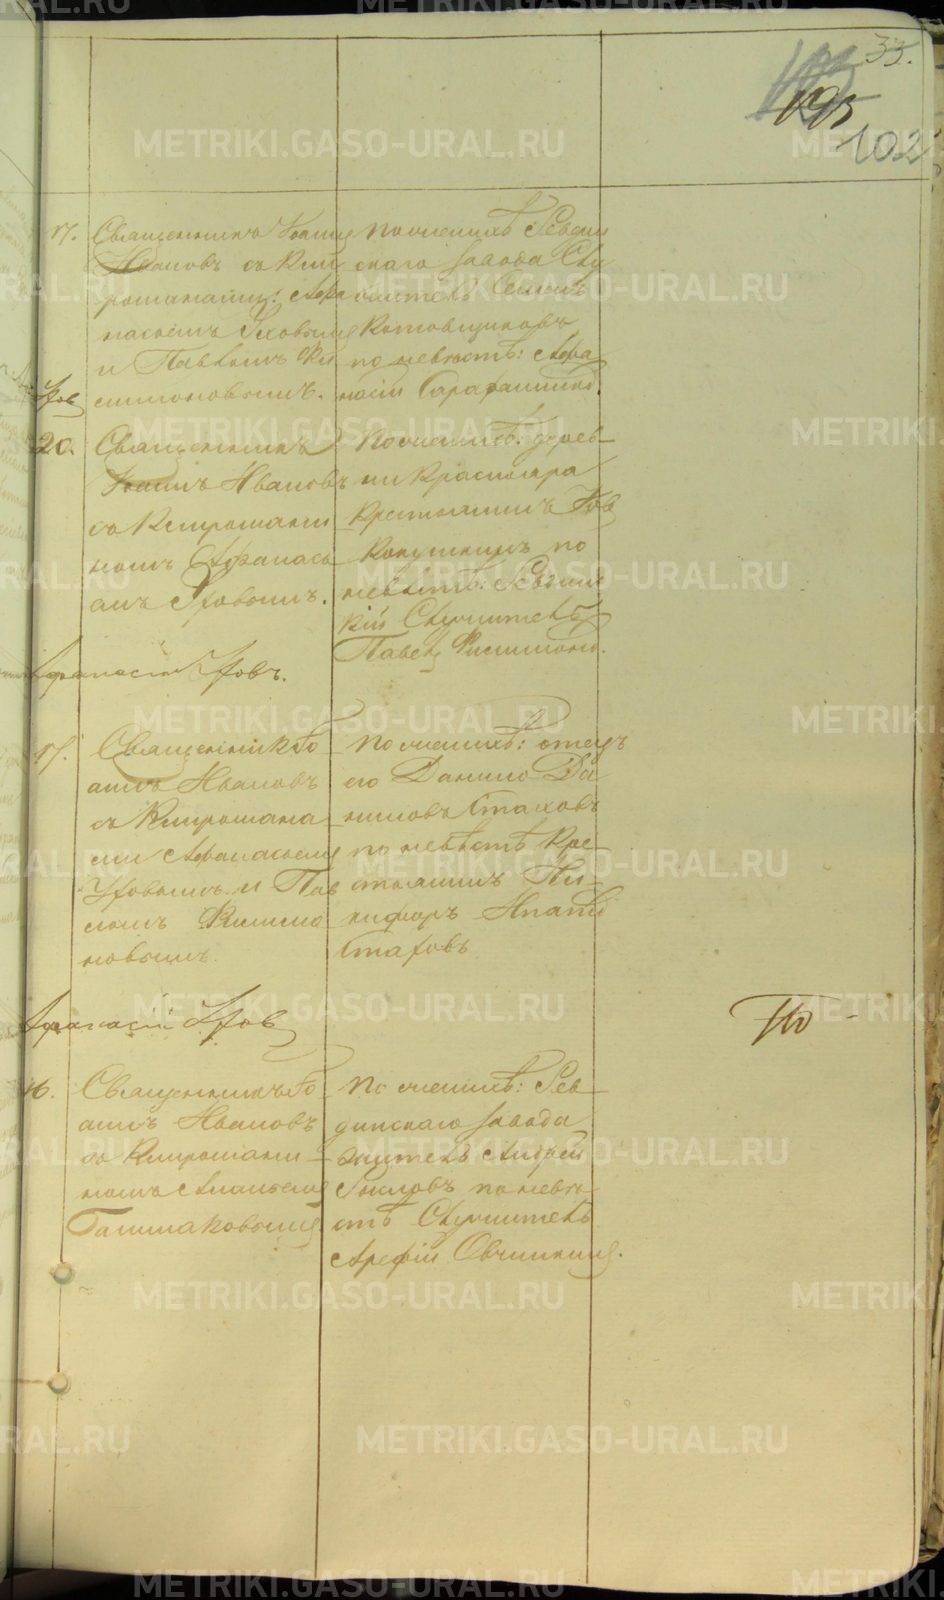 33.
195
102
17.
Священникъ Іоаннъ
Ивановъ съ Кли
рошанами: Афа
насіемъ Уховымъ
и Павломъ Фи
лимоновымъ.
По женихѣ Ревдин
скаго завода Слу
житель Семенъ
Котовщиковъ
по невѣстѣ: Афа
насій
20.
Священникъ
Іоаннъ Ивановъ
съ Клирошани
номъ Афанась
емъ Уховымъ.
По женихѣ: дерев
ни Краснояра
Крестьянинъ Іов
Кокушкинъ по
невѣстѣ: Ревдинс
кій Служитель
Павелъ Филимоно.
Афанасій Уховъ.
17.
Священникъ Іо
аннъ Ивановъ
съ Клирошана
ми Афанасьемъ
Уховымъ и Пав
ломъ Филимо
новымъ.
По женихѣ: отецъ
его Данило Да
ниловъ Стаховъ
по невѣстѣ Кре
стьянинъ Ни
кифоръ Ипатъ
Стаховъ
Афанасій Ухов
16.
Священникъ Іо
аннъ Ивановъ
съ Клирошани
номъ Ананьемъ
Башмаковымъ
По женихѣ: Рев
динскаго завода
житель Андрей
по невѣ
стѣ Служитель
Арефій Овчинкинъ.
METRIKI.GASO-URAL.RU